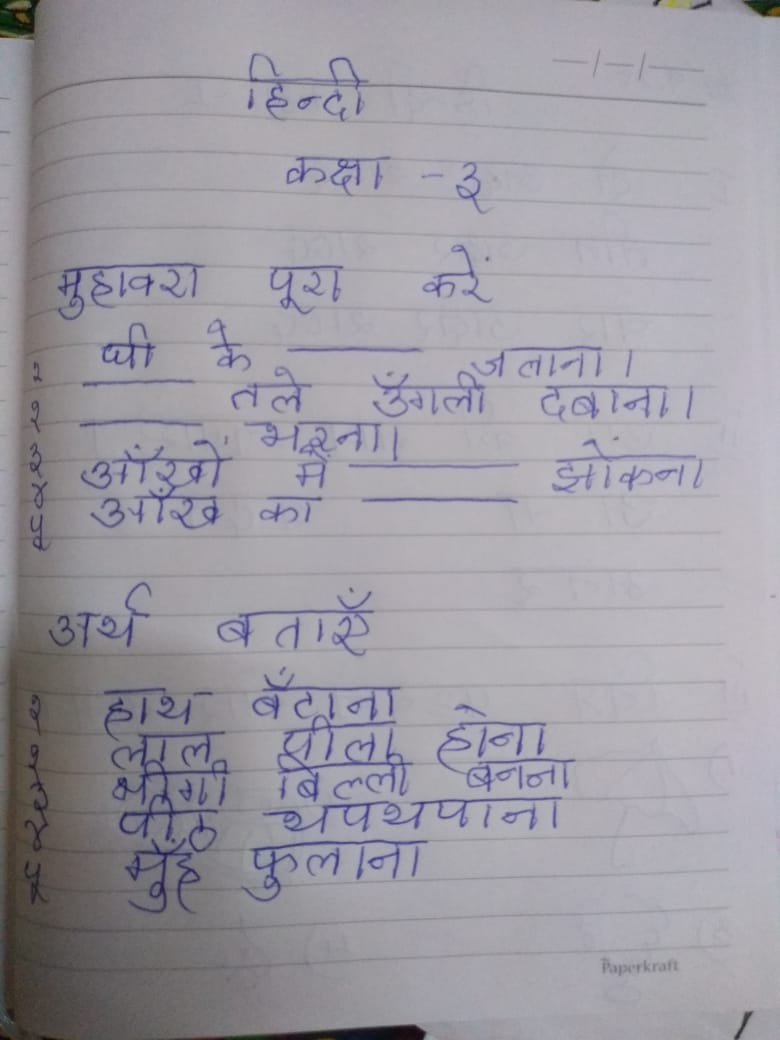 —/—/—
हिन्दी
कक्षा - ३
मुहावरा पूरा करें
१ घी के ______ जलाना।
२ ______ तले उँगली दबाना।
३ ______ भरना।
४ आँखों में ______ झोंकना
५ आँख का ______
अर्थ बताएँ
१ हाथ बँटाना
२ लाल पीला होना
३ भीगी बिल्ली बनना
४ पीठ थपथपाना
५ मुँह फुलाना
Paperkraft